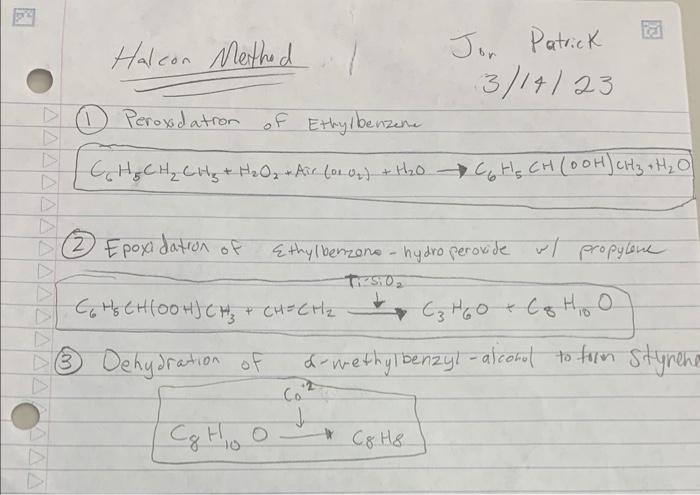 Jon Patrick
Halcon Method
3/14/23
① Peroxidation of Ethylbenzene
C6H5CH2CH3 + H2O2 + Air (or O2) + H2O → C6H5CH(OOH)CH3 + H2O
② Epoxidation of Ethylbenzene-hydroperoxide w/ propylene
Ti-SiO2
C6H5CH(OOH)CH3 + CH=CH2 → C3H6O + C8H10O
③ Dehydration of α-methylbenzyl-alcohol to form Styrene
Co+2
C8H10O → C8H8